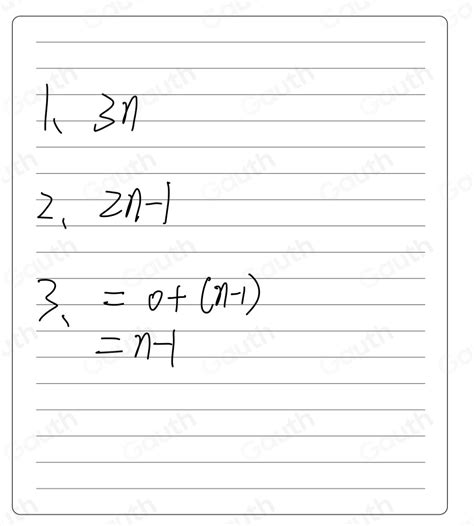 1、 3n
2、 2n-1
3、 = 0+(n-1)
= n-1
Gauth